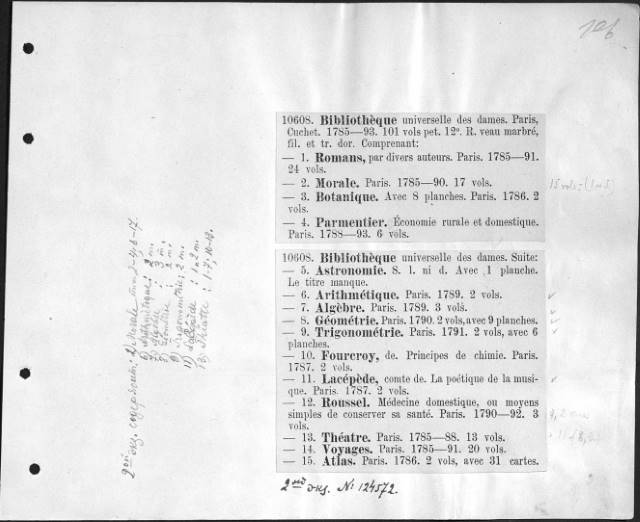 106
10608. Bibliothèque universelle des dames. Paris,
Cuchet. 1785—93. 101 vols pet. 12º. R. veau marbré,
fil. et tr. dor. Comprenant:
— 1. Romans, par divers auteurs. Paris. 1785—91.
24 vols.
— 2. Morale. Paris. 1785—90. 17 vols.
— 3. Botanique. Avec 8 planches. Paris. 1786. 2
vols.
— 4. Parmentier. Économie rurale et domestique.
Paris. 1788—93. 6 vols.
10608. Bibliothèque universelle des dames. Suite:
— 5. Astronomie. S. l. ni d. Avec 1 planche.
Le titre manque.
— 6. Arithmétique. Paris. 1789. 2 vols.
— 7. Algèbre. Paris. 1789. 3 vols.
— 8. Géométrie. Paris. 1790. 2 vols, avec 9 planches.
— 9. Trigonométrie. Paris. 1791. 2 vols, avec 6
planches.
— 10. Fourcroy, de. Principes de chimie. Paris.
1787. 2 vols.
— 11. Lacépède, comte de. La poétique de la musi-
que. Paris. 1787. 2 vols.
— 12. Roussel. Médecine domestique, ou moyens
simples de conserver sa santé. Paris. 1790—92. 3
vols.
— 13. Théatre. Paris. 1785—88. 13 vols.
— 14. Voyages. Paris. 1785—91. 20 vols.
— 15. Atlas. Paris. 1786. 2 vols, avec 31 cartes.
2nd № 124572.